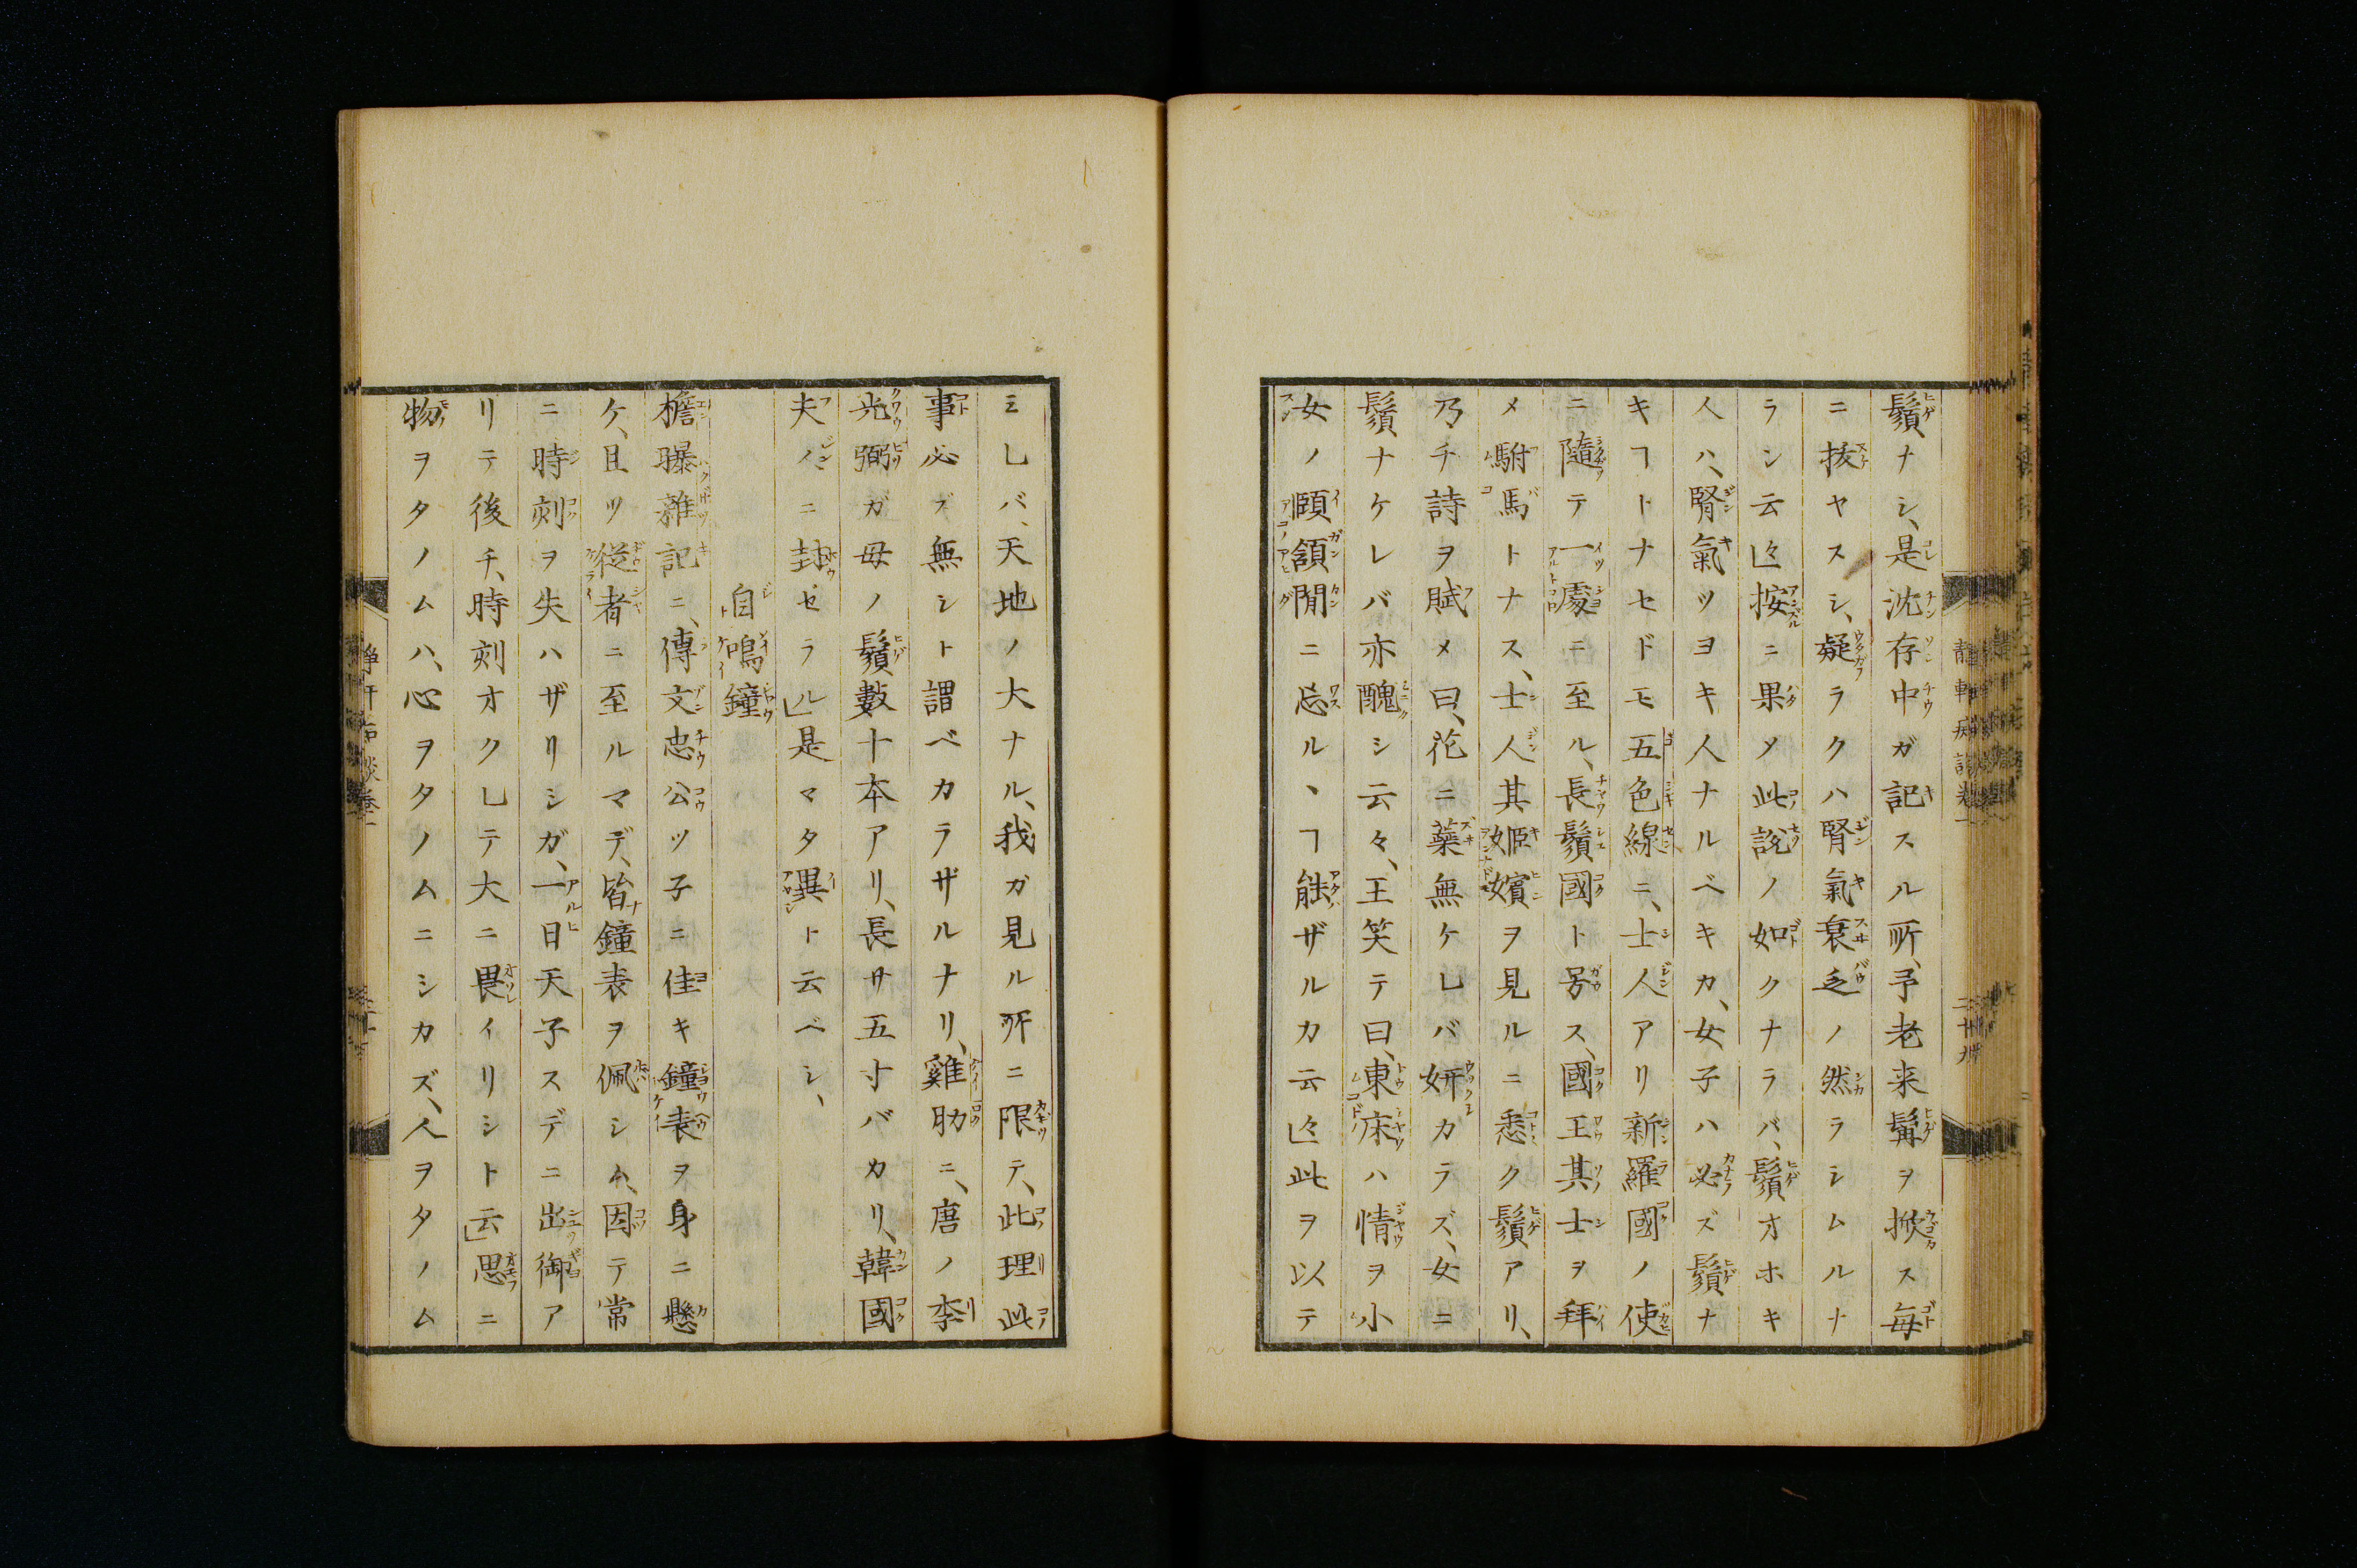 鬚ナシ、是沈存中ガ記スル所、予老来髯ヲ掀ス毎
ニ抜ヤスシ、疑ラクハ腎氣衰乏ノ然ラシムルナ
ラン云々按ニ果メ此説ノ如クナラバ、鬚オホキ
人ハ、腎氣ツヨキ人ナルベキカ、女子ハ必ズ鬚ナ
キヿトナセドモ五色線ニ、士人アリ新羅國ノ使
ニ隨テ一處ニ至ル、長鬚國ト号ス、國王其士ヲ拜
メ駙馬トナス、士人其姬嬪ヲ見ルニ悉ク鬚アリ、
乃チ詩ヲ賦メ曰、花ニ蘂無ケレバ妍カラズ、女ニ
鬚ナケレバ亦醜シ云々、王笑テ曰、東床ハ情ヲ小
女ノ頤頷間ニ忘ルヽヿ能ザルカ云々此ヲ以テ
ミレバ、天地ノ大ナル、我ガ見ル所ニ限テ、此理此
事必ズ無シト謂ベカラザルナリ、雞肋ニ、唐ノ李
光弼ガ母ノ鬚數十本アリ、長サ五寸バカリ、韓國
夫人ニ封セラル」是マタ異ト云ベシ、
自鳴鐘
檐曝雜記ニ、傳文忠公ツ子ニ佳キ鐘表ヲ身ニ懸
ケ、且ツ從者ニ至ルマデ、皆鐘表ヲ佩シム、因テ常
ニ時刻ヲ失ハザリシガ、一日天子スデニ出御ア
リテ後チ、時刻オクレテ大ニ畏イリシト云」思ニ
物ヲタノムハ、心ヲタノムニシカズ、人ヲタノム